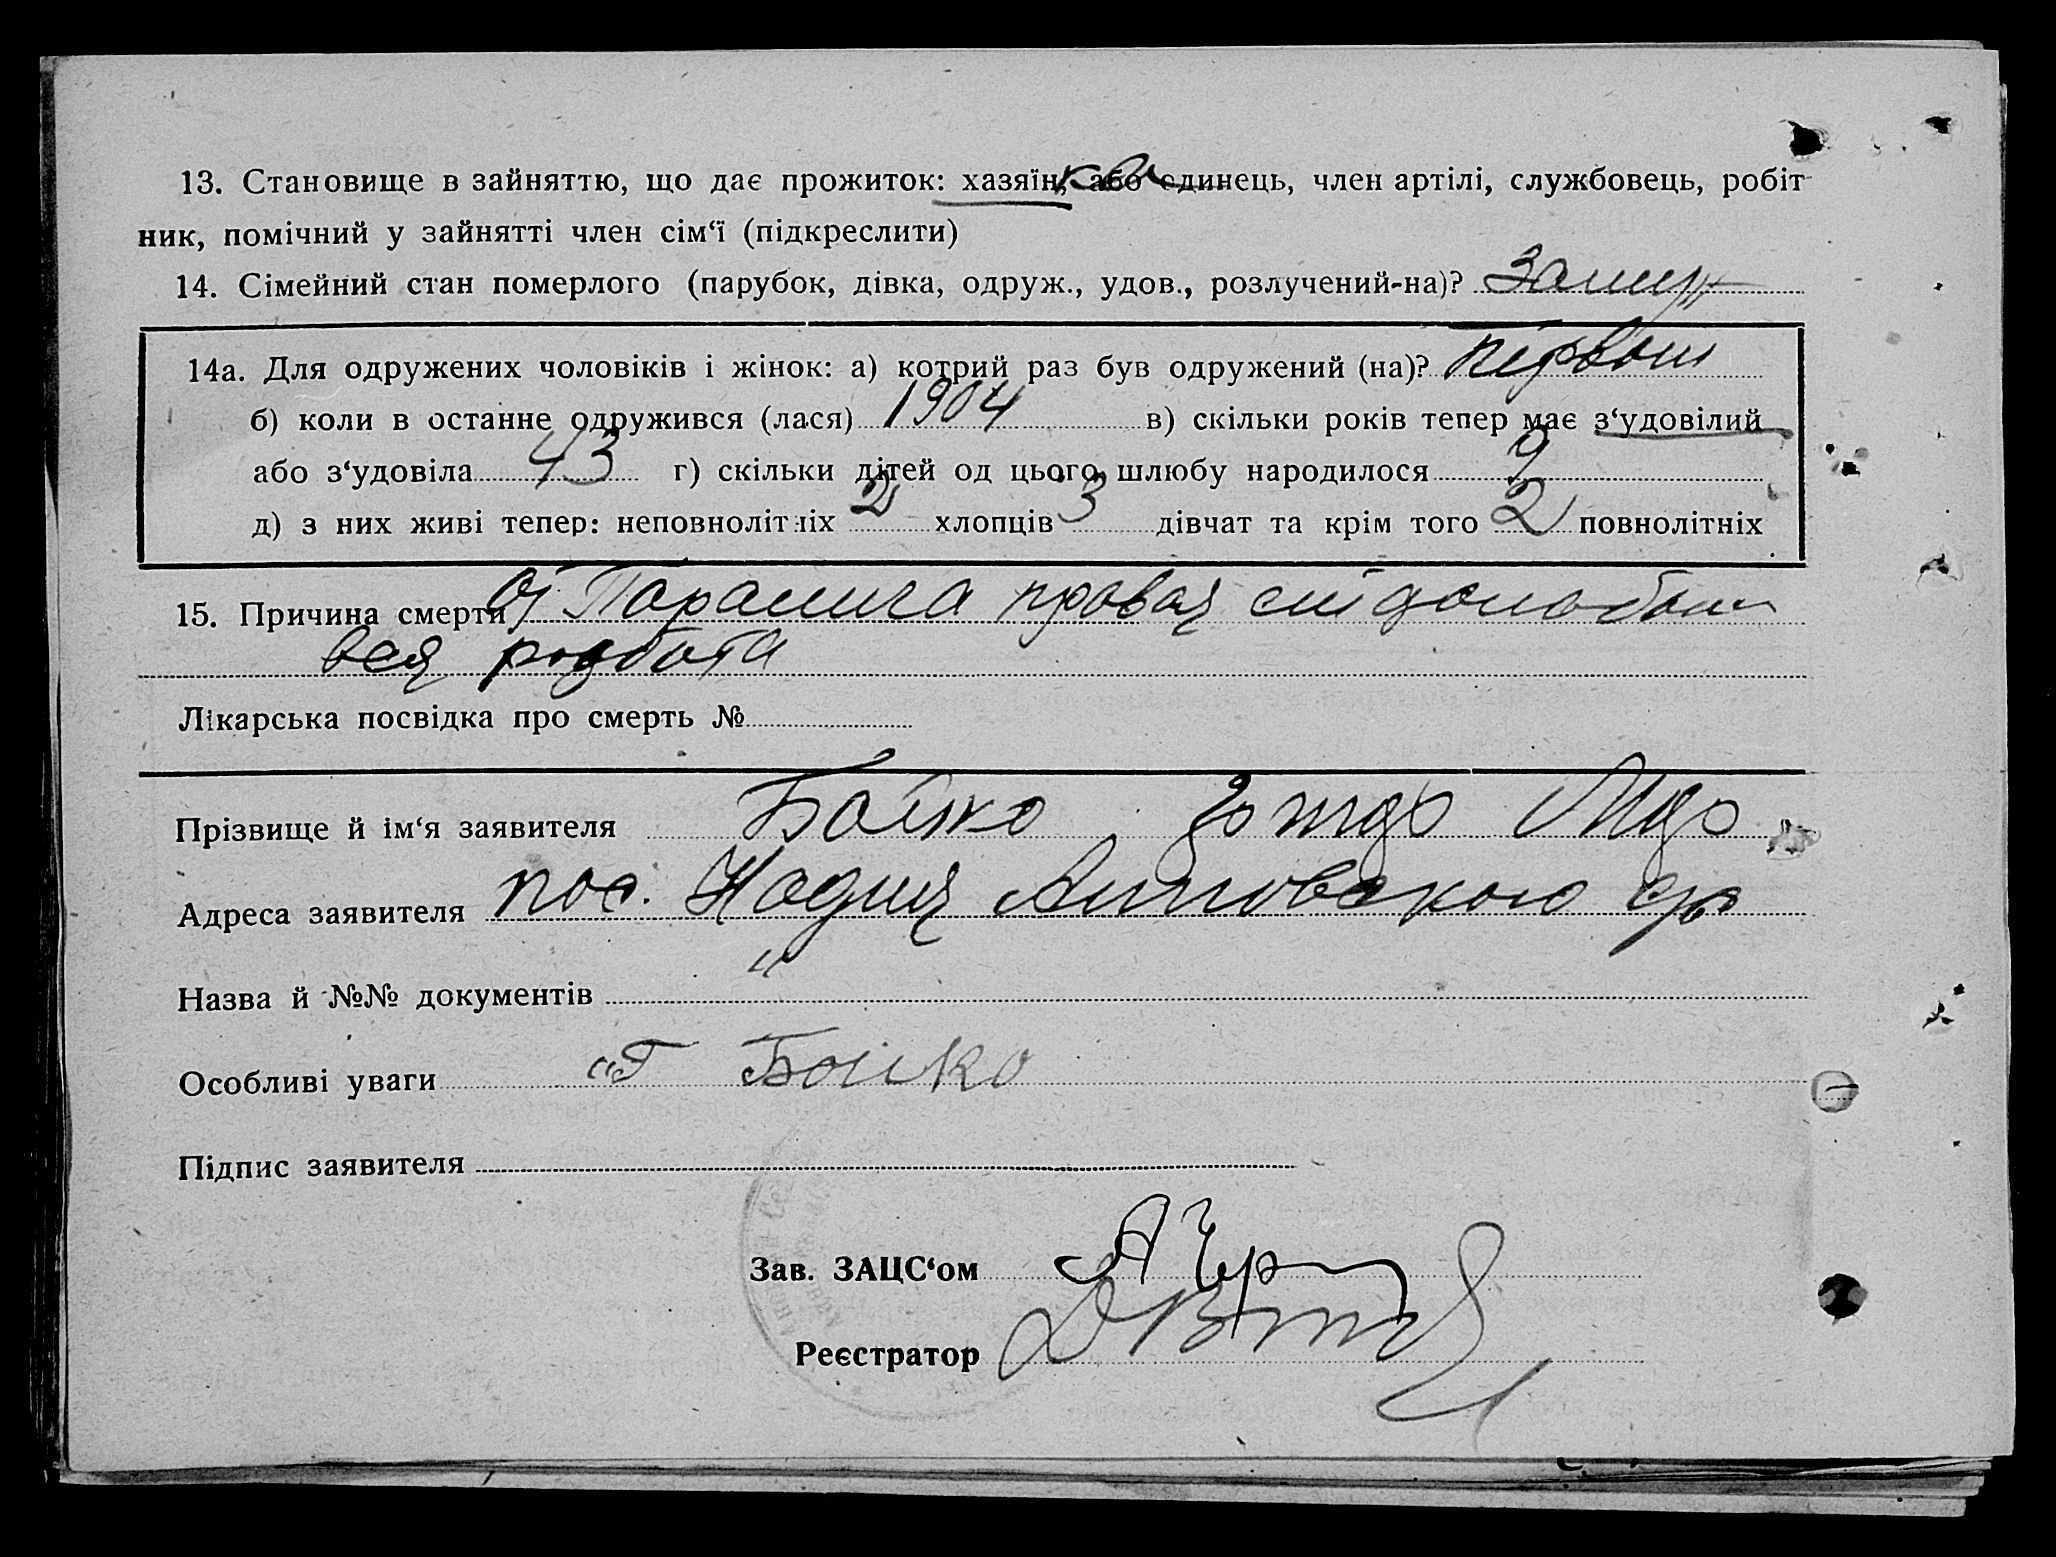 13. Становище в зайняттю, що дає прожиток: хазяїн, або одинець, член артілі, службовець, робіт-
ник, помічний у зайнятті член сім‘ї (підкреслити)
14. Сімейний стан померлого (парубок, дівка, одруж., удов., розлучений-на)? Замуж
14а. Для одружених чоловіків і жінок: а) котрий раз був одружений (на)?
б) коли в останне одружився (лася) 1904 в) скільки років тепер має з‘удовілий
або з‘удовіла 43 г) скільки дітей од цього шлюбу народилося 9
д) з них живі тепер: неповнолітніх 2 хлопців 3 дівчат та крім того 2 повнолітніх
15. Причина смерти от Паралича правая
вся розбита
Лікарська посвідка про смерть №
Прізвище й ім‘я заявителя Бойко
Адреса заявителя пос. Надия
Назва й №№ документів "
Особливі уваги Бойко
Підпис заявителя
Зав. ЗАЦС‘ом
Реєстратор